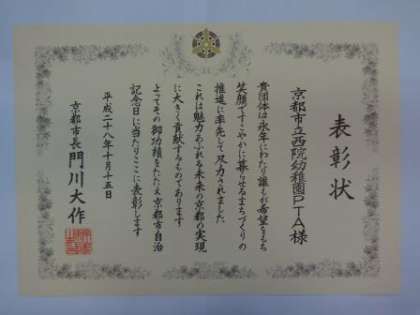 表彰状
京都市立西院幼稚園PTA様
貴団体は永年にわたり誰もが希望をもち
笑顔ですこやかに暮らせるまちづくりの
推進に率先して尽力されました
これは魅力あふれる未来の京都の実現
に大きく貢献するものであります
よってその御功績をたたえ京都市自治
記念日に当たりここに表彰します
平成二十八年十月十五日
京都市長 門川大作